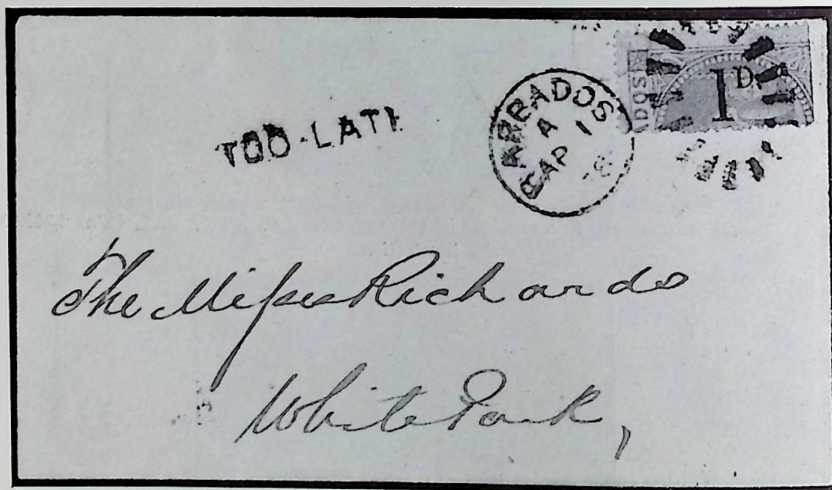 TOO-LATE
BARBADOS
A
AP 1
1D.
ADOS
The Misses Richards
White Park,